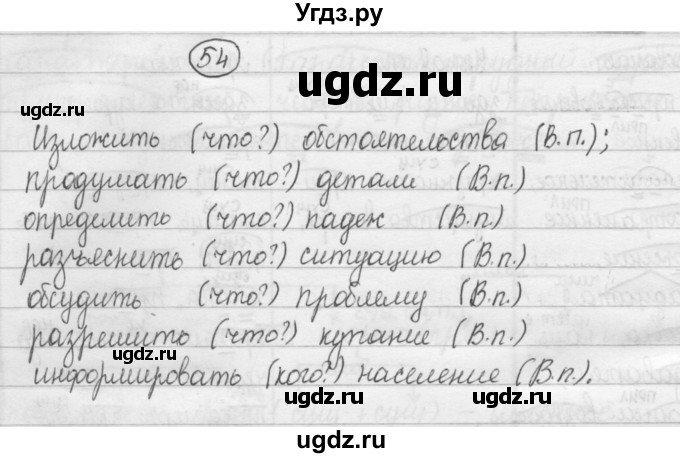 Угдз.ру
54
ugdz.ru
ugdz.ru
Изложить (что?) обстоятельства (В.п.);
продумать (что?) детали (В.п.)
определить (что?) падеж (В.п.)
разъяснить (что?) ситуацию (В.п.)
обсудить (что?) проблему (В.п.)
разрешить (что?) купание (В.п.)
ugdz.ru
информировать (кого?) население (В.п.).
ugdz.ru
ugdz.ru
ugdz.ru